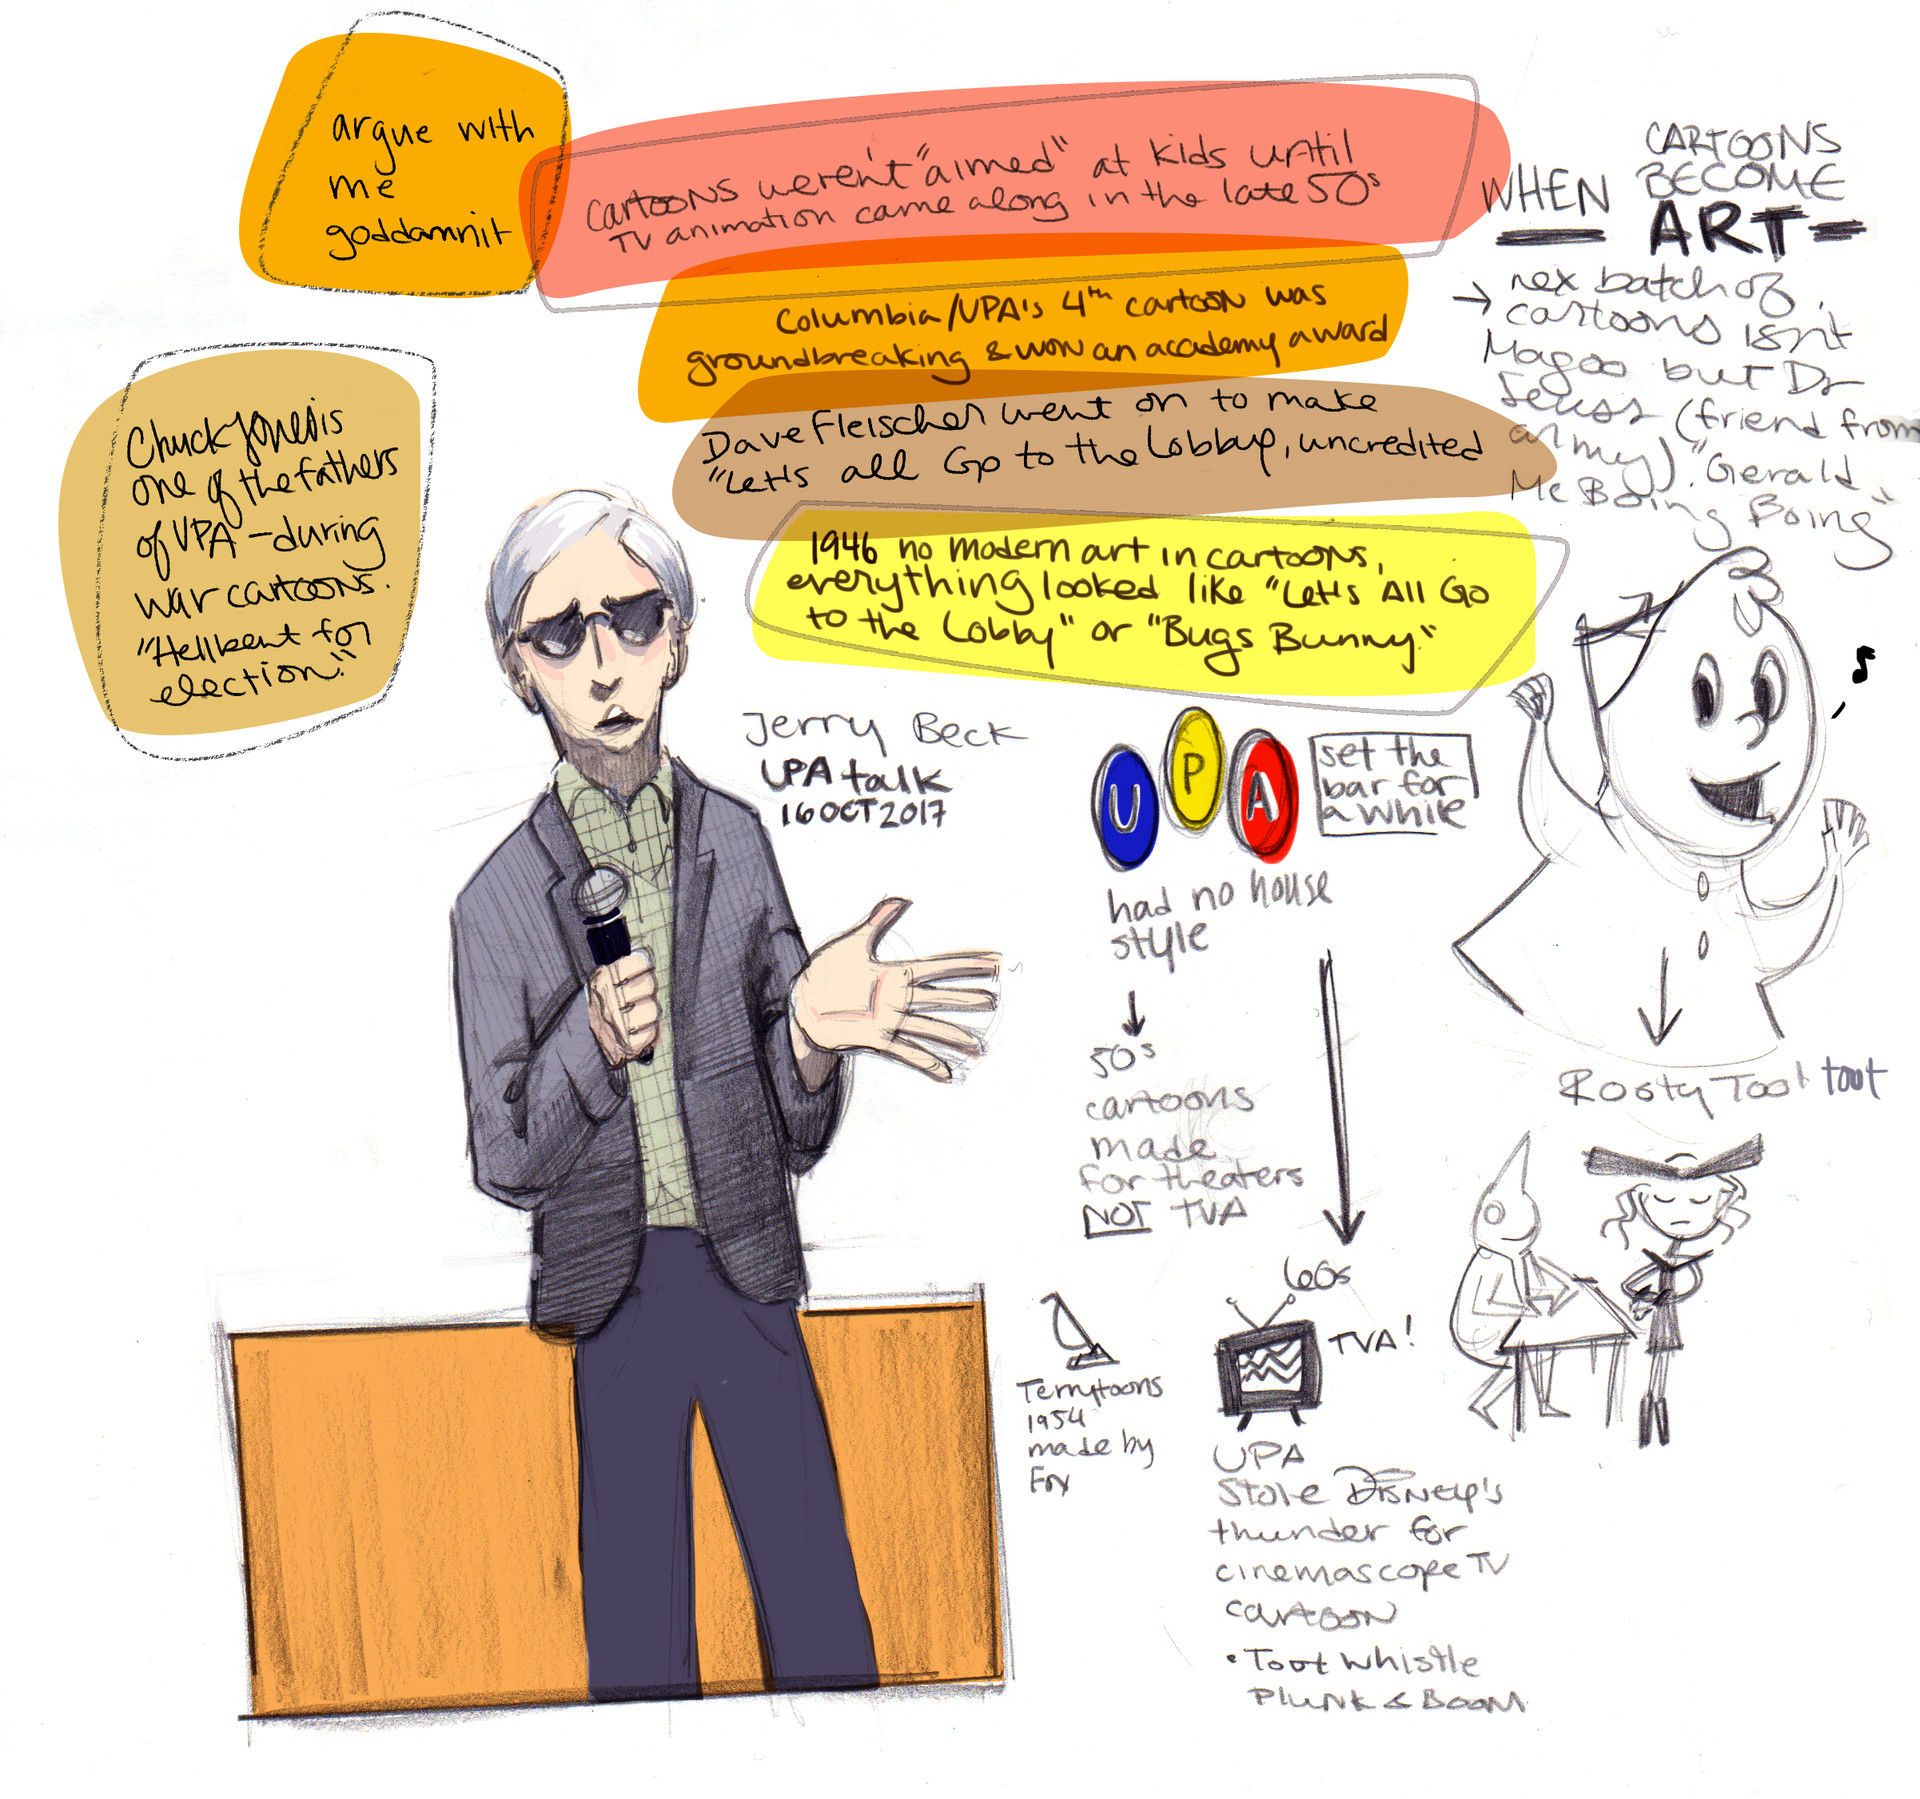 argue with
me
goddamnit
cartoons weren't "aimed" at kids until
TV animation came along in the late 50s
Columbia/UPA's 4th cartoon was
groundbreaking & won an academy award
Dave Fleischer went on to make
"Let's all Go to the Lobby, uncredited
1946 no modern art in cartoons,
everything looked like "Let's All Go
to the Lobby" or "Bugs Bunny."
Chuck Jones is
one of the fathers
of UPA - during
war cartoons.
"Hellbent for
election."
WHEN CARTOONS
BECOME
ART
→ nex batch of
cartoons isn't
Magoo but Dr
Seuss (friend from
army). "Gerald
Mc Boing Boing"
Jerry Beck
UPA talk
16 OCT 2017
UPA
set the
bar for
a while
had no house
style
50s
cartoons
made
for theaters
NOT TVA
60s
TVA!
Terrytoons
1954
made by
Fox
UPA
Stole Disney's
thunder for
cinemascope TV
cartoon
• Toot Whistle
Plunk & Boom
Rosty Toot toot